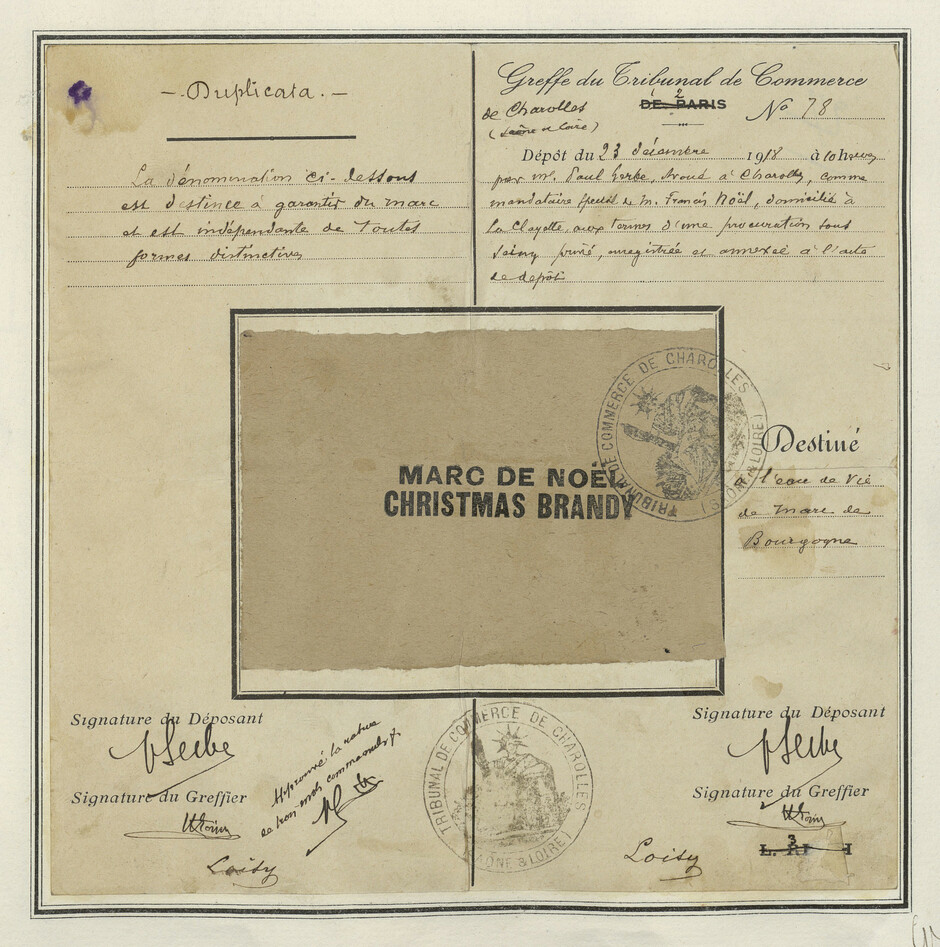 - Duplicata. -
La dénomination ci-dessous
est destinée à garantir du marc
et est indépendante de toutes
formes distinctives
Greffe du Tribunal de Commerce
de Charolles
(Saône et Loire)
1 2
DE PARIS
No 78
Dépôt du 23 décembre 1918 à 10 heures
par M. Paul Gerbe, Avoué à Charolles, comme
mandataire spécial de M. Francis Noël, domicilié à
La Clayette, aux termes d'une procuration sous
seing privé, enregistrée et annexée à l'acte
de dépôt
MARC DE NOËL
CHRISTMAS BRANDY
TRIBUNAL DE COMMERCE DE CHAROLLES
(SAÔNE & LOIRE)
Destiné
à l'eau de vie
de marc de
Bourgogne
Signature du Déposant
PGerbe
Signature du Greffier
Loisy
Approuvé la rature
de trois mots
TRIBUNAL DE COMMERCE DE CHAROLLES
(SAÔNE & LOIRE)
Signature du Déposant
PGerbe
Signature du Greffier
3
Loisy